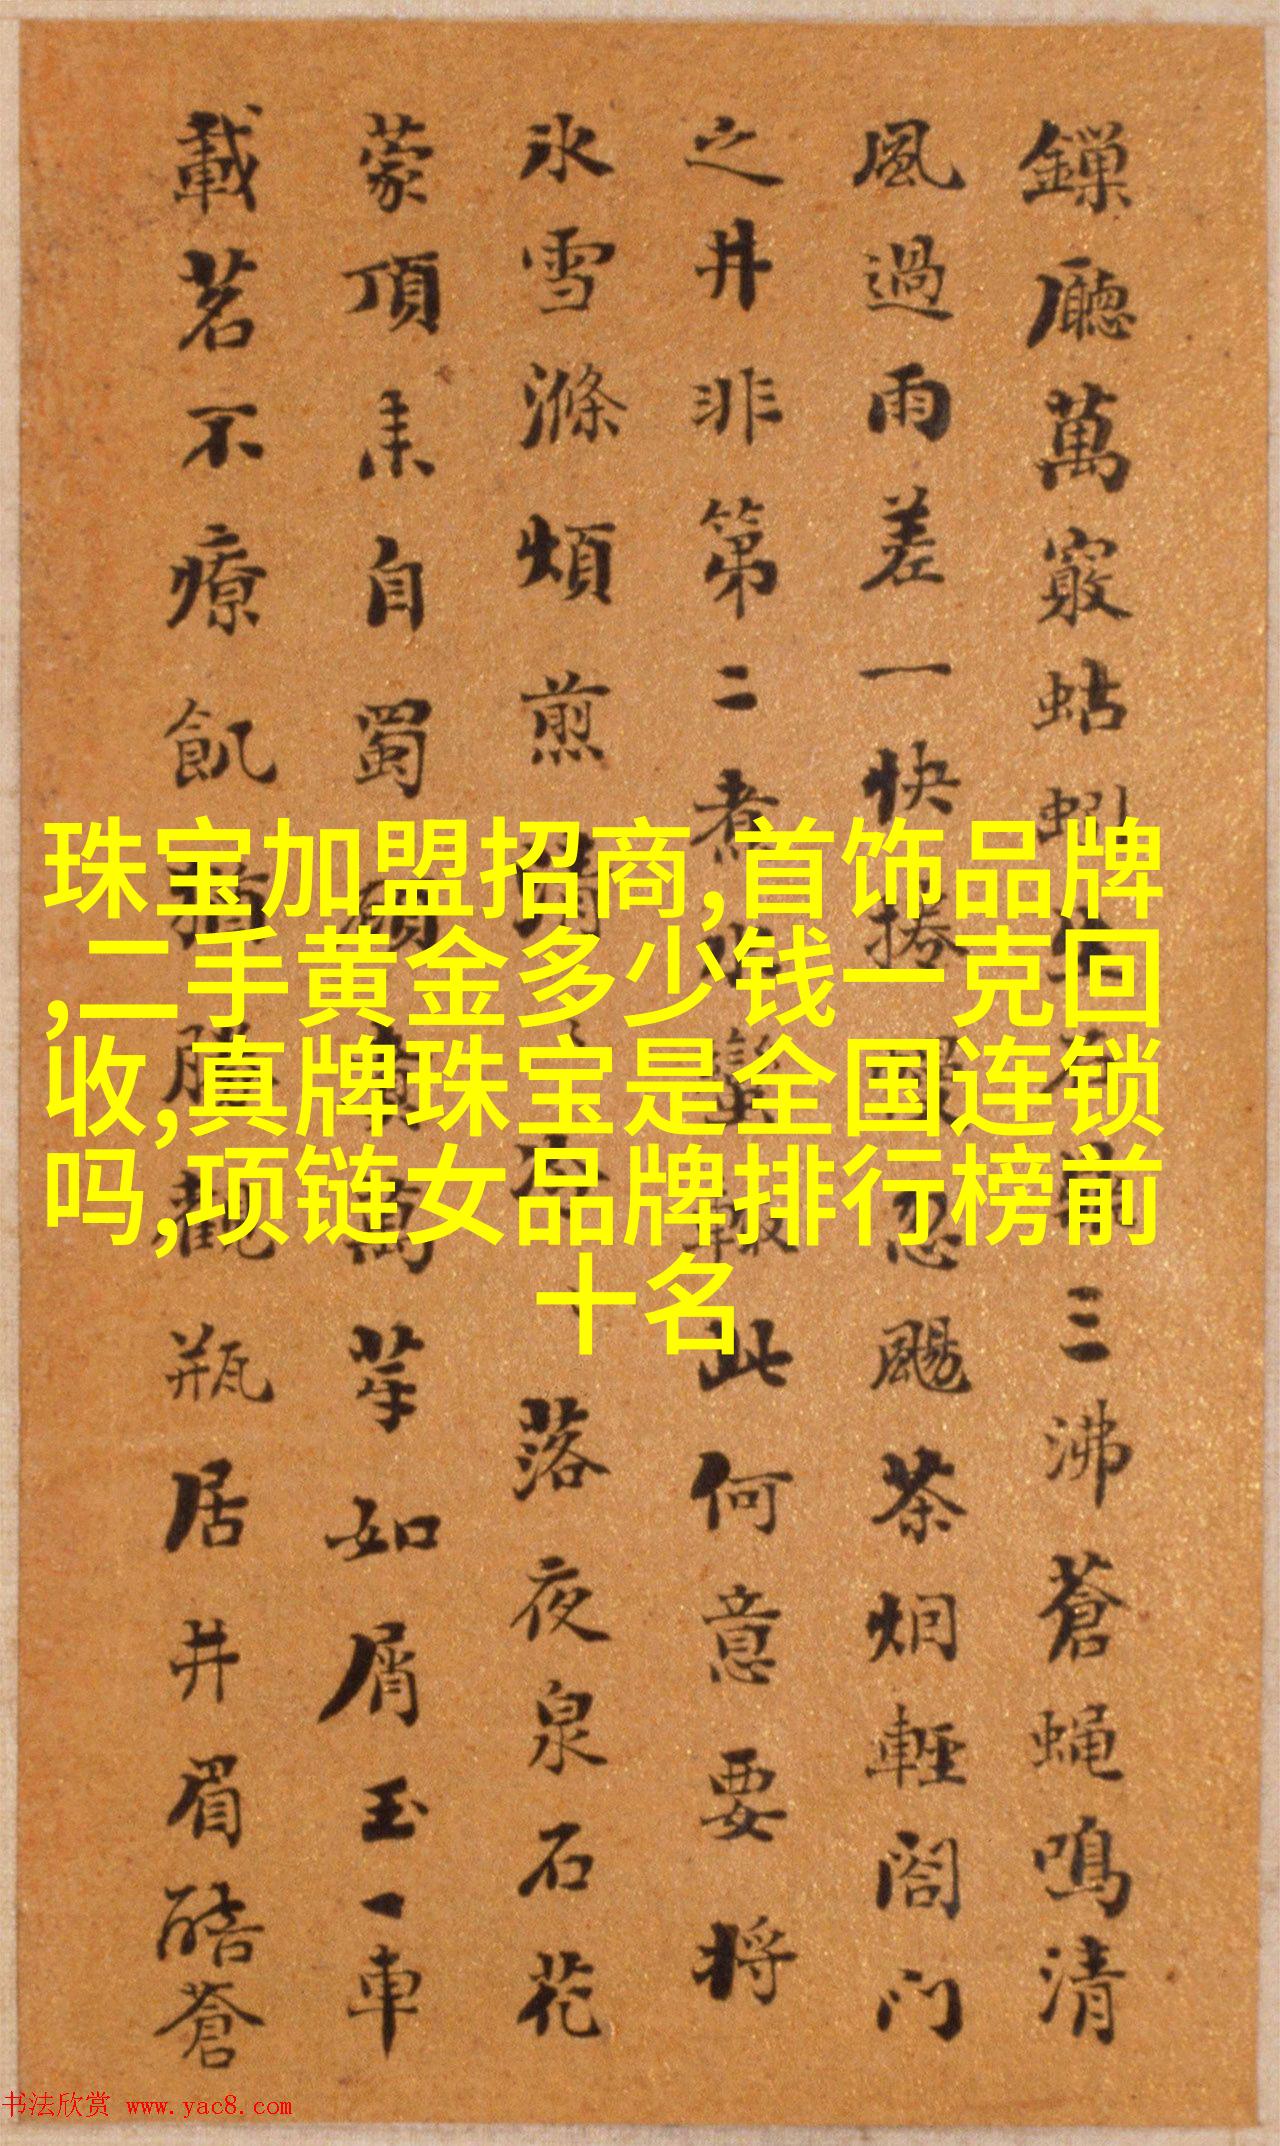 廳萬竅蛄蚓三沸蒼蠅鳴清
風過雨差一快忍颺茶烟輕閤門
之井非第二煮此何意要將
氷雪滌煩煎落夜泉石花
蒙頂来自蜀萬芽如屑玉一車
載茗不療飢觀瓶居井眉酷蒼
珠宝加盟招商,首饰品牌
,二手黄金多少钱一克回
收,真牌珠宝是全国连锁
吗,项链女品牌排行榜前
十名
书法欣赏 www.yac8.com